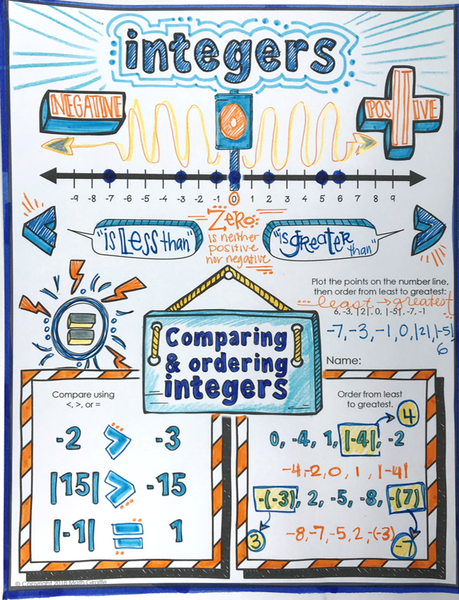 integers
NEGATIVE
POSITIVE
-9 -8 -7 -6 -5 -4 -3 -2 -1 0 1 2 3 4 5 6 7 8 9
<
"is Less than"
Zero:
is neither
positive
nor negative
"is greater than"
>
Plot the points on the number line,
then order from least to greatest:
least → greatest
6, -3, |2|, 0, |-5|, -7, -1
-7, -3, -1, 0, |2|, |-5|
6
=
Comparing
& ordering
integers
Name:
Compare using
<, >, or =
-2 > -3
|15| > -15
|-1| = 1
Order from least
to greatest.
4
0, -4, 1, |-4|, -2
-4, -2, 0, 1, |-4|
-(-3), 2, -5, -8, -(7)
3
-8, -7, -5, 2, -(-3)
-7